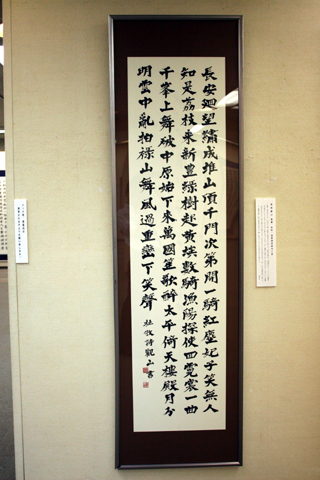 長安迴望繡成堆山頂千門次第開一騎紅塵妃子笑無人
知是荔枝來新豊綠樹起黃埃數騎漁陽探使回霓裳一曲
千峯上舞破中原始下來萬國笙歌醉太平倚天樓殿月分
明雲中亂拍祿山舞風過重巒下笑聲
杜牧詩觀山書